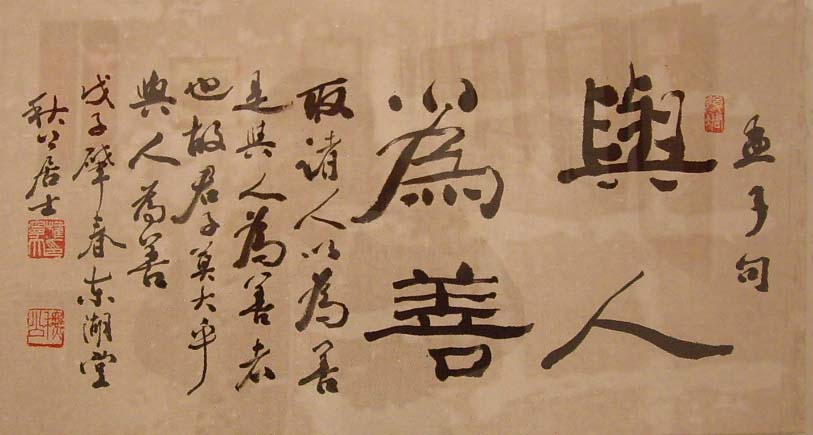 孟子句
與人
為善
取諸人以為善
是與人為善者
也故君子莫大乎
與人為善
戊子肇春东湖堂
秋居士